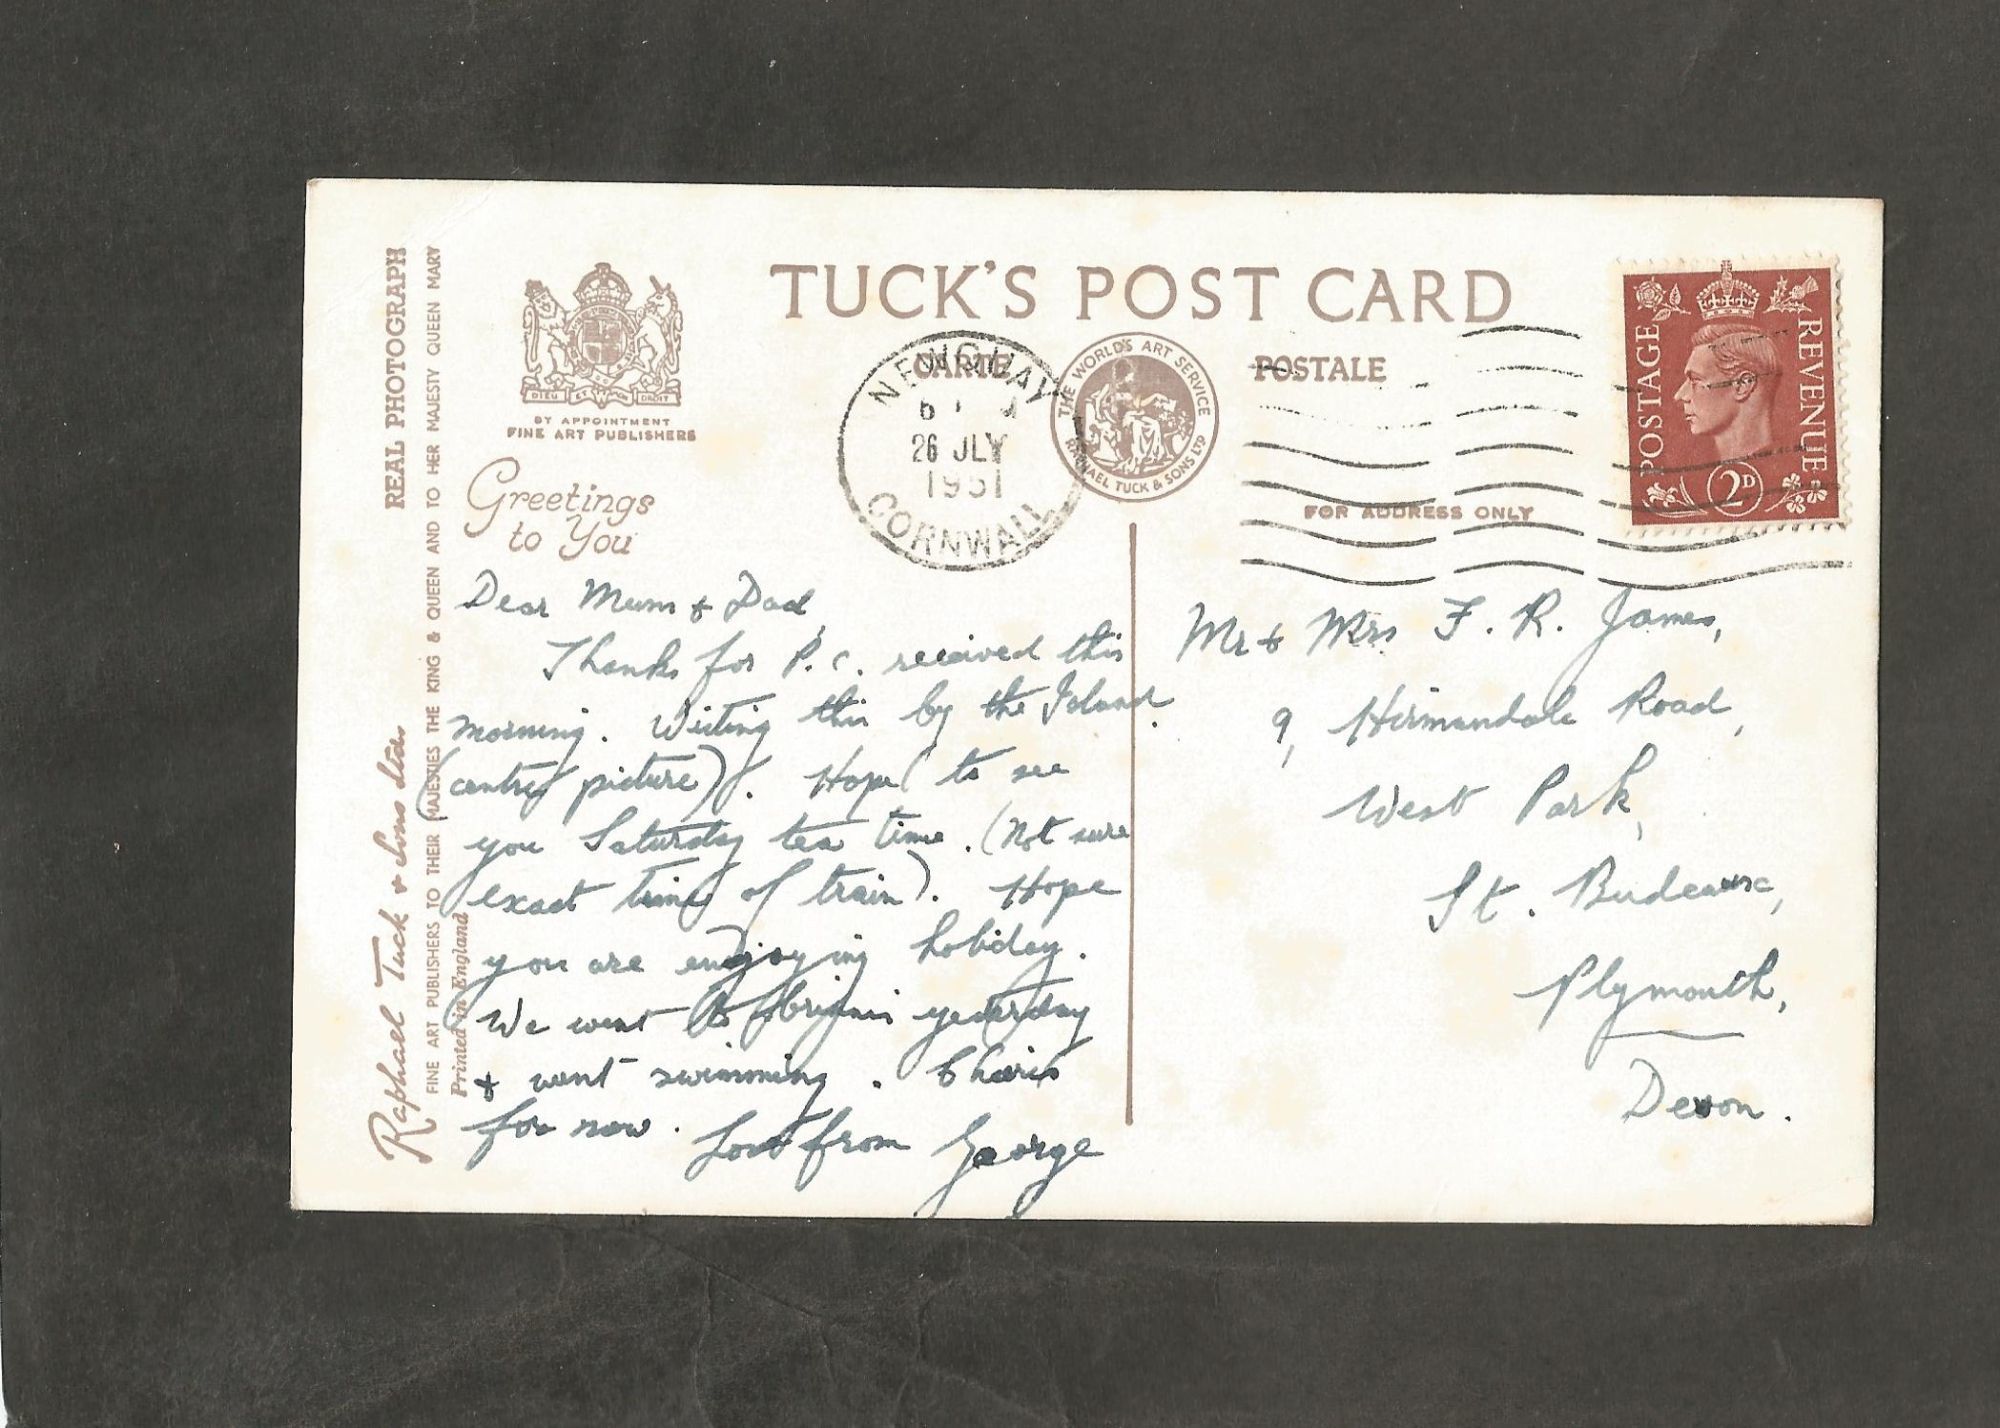 TUCK'S POST CARD
CARTE POSTALE
REAL PHOTOGRAPH
Raphael Tuck & Sons Ltd.
FINE ART PUBLISHERS TO THEIR MAJESTIES THE KING & QUEEN AND TO HER MAJESTY QUEEN MARY
Printed in England
DIEU ET MON DROIT
BY APPOINTMENT
FINE ART PUBLISHERS
Greetings
to You
NEWQUAY
26 JLY
1951
CORNWALL
THE WORLD'S ART SERVICE
RAPHAEL TUCK & SONS LTD
FOR ADDRESS ONLY
POSTAGE REVENUE
2D
Dear Mum & Dad,
Thanks for P.C. received this
morning. Writing this by the Island.
(centre picture). Hope to see
you Saturday tea time. (Not sure
exact time of train). Hope
you are enjoying holiday.
We went to yesterday
& went swimming. Cheerio
for now. Love from George
Mr & Mrs F. R. James,
9, Road,
West Park,
St. Budeaux,
Plymouth,
Devon.